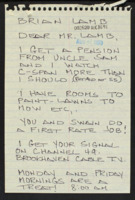 BRIAN LAMB
DEAR MR. LAMB,
I GET A PENSION
FROM UNCLE SAM
AND I WATCH
C-SPAN MORE THAN
I SHOULD
I HAVE ROOMS TO
PAINT - LAWNS TO
MOW ETC,
YOU AND SWAIN DO
A FIRST RATE JOB!
I GET YOUR SIGNAL
ON CHANNEL 49.
BROOKHAVEN CABLE TV.
MONDAY AND FRIDAY
MORNINGS ARE A
TREAT! 8:00 AM